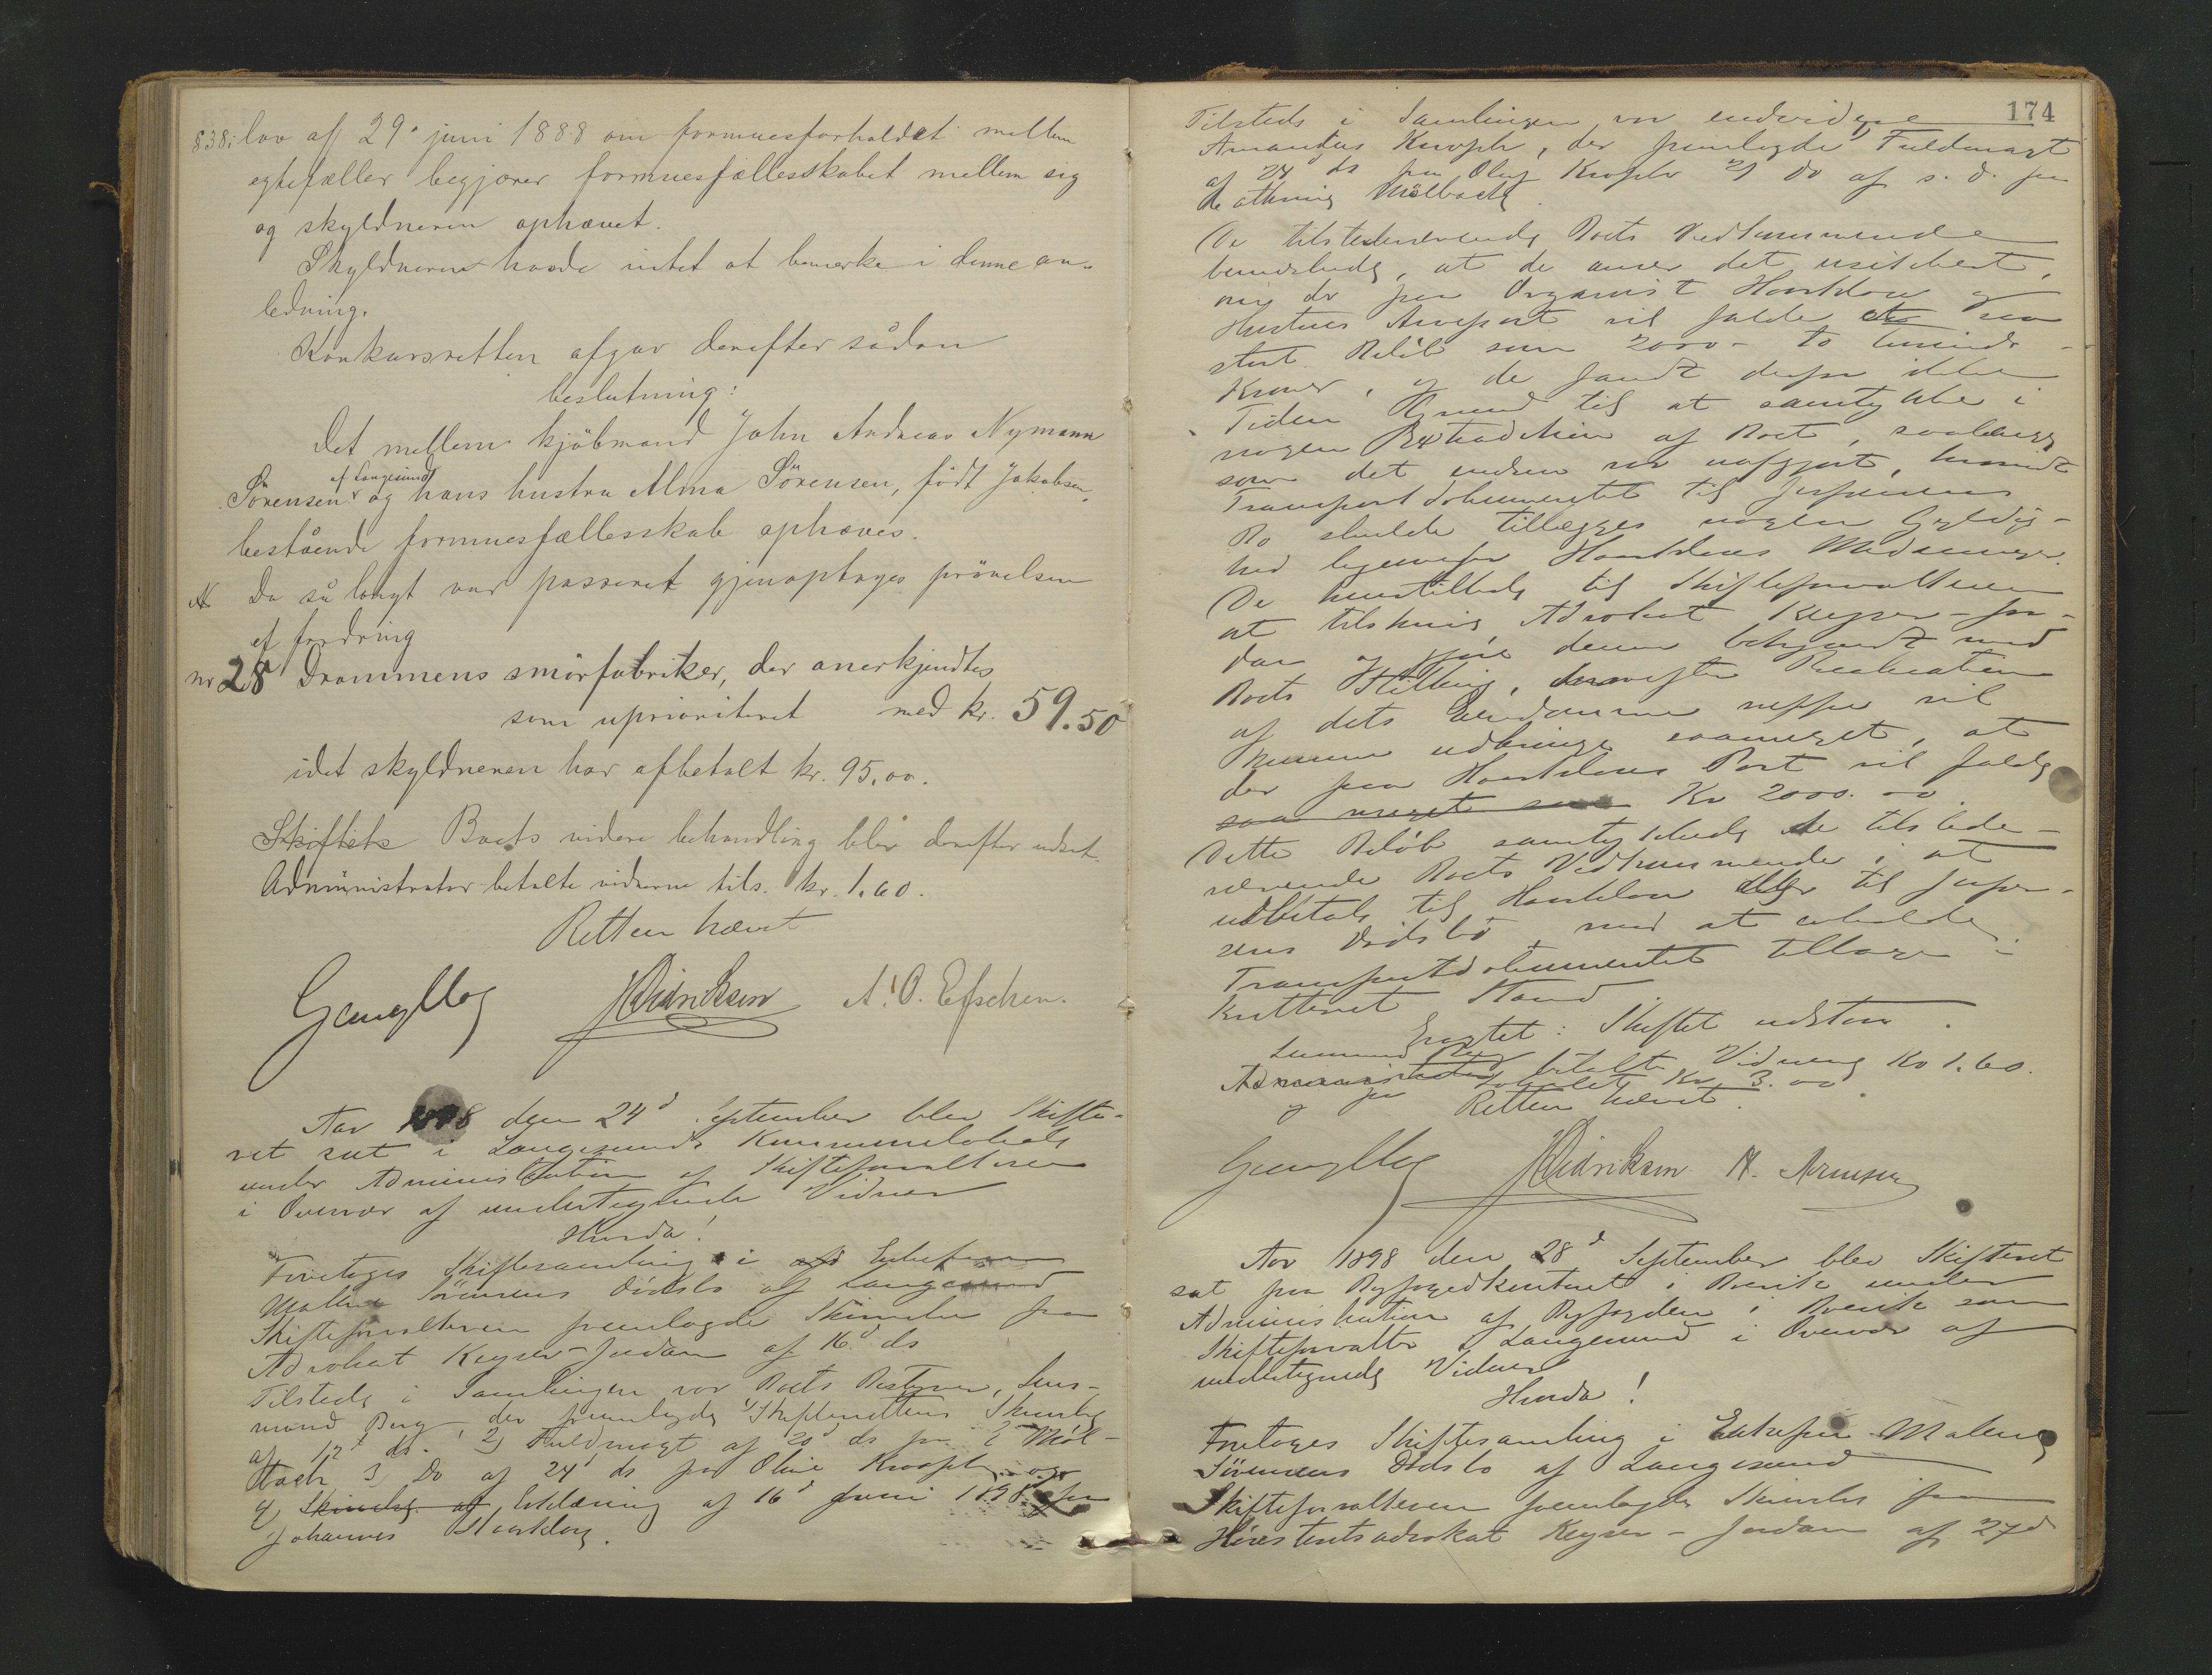 838: lov aff 29' juni 1888 om formuesforholdet mellem
egtefæller begjærer formuesfællesskabet mellem sig
og skyldneren ophævet.
Skyldneren havde intet at bemærke i denne an-
ledning.
Konkursretten afgav derefter sådan
beslutning:
Det mellem kjöbmand John Andreas Nymann
af Langesund
Sörensen og hans hustru Alma Sörensen, födt Jakobsen,
bestående formuesfællesskab ophæves.
Da så langt var passeret gjenoptoges prövelsen
af fordring
nr 28 Drammens smörfabriker, der anerkjendtes
som uprioriteret med kr. 59.50
idet skyldneren har afbetalt kr. 95.00.
Skiftets Boets videre behandling blev derefter udsat.
Administrator betalte vidnerne tils. kr. 1.60.
Retten hævet
Aar 1898 den 24d September blev Skifte-
ret sat i Langesunds Kommunelokale
under Administration af Skifteforvalteren
i Overvær af undertegnede Vidner
Hvorda!
Foretoges Skiftesamling i Enkefrue
Malene Sörensens Dödsbo af Langesund
Skifteforvalteren fremlagde Skrivelse fra
Advokat Keyser-Jordan af 16d ds
Tilstede i Samlingen var Boets Bestyrer, Lens-
mand Berg, der fremlagde 1) Skifterettens Skrivelse
af 12t ds. 2) Fuldmagt af 20d ds fra E Möl-
bach 3) Do af 24d ds fra Oline Knoph og
4) Skrivelse af Erklæring af 16d Juni 1898 fra
Johannes
174
Tilsteds i Samlingen var endvidere
Amandus Knoph, der fremlagde Fuldmagt
af 24d ds fra Oluf Knoph 2) Do af s. d. fra
Mölbach
De tilstedeværende Boets Vedkommende
bemærkede, at de anser det usikkert,
om der paa Organist
Hustrus Arvepart vil falde et saa
stort Belöb som 2000 - to tusinde -
Kroner, og de fandt derfor ikke
Tiden Grund til at samtykke i
nogen Extradition af Boet, saalænge
som det endnu var uafgjort, hvorvidt
Transportdokumentet til Jespersens
Bo skulde tillægges nogen Gyldig-
hed
De henstillede til Skifteforvalteren
at tilskrive Advokat Keyser-Jor-
dan og gjöre denne bekjendt med
Boets Stilling, Realisation
af dets Eiendomme neppe vil
kunne udbringe saameget, at
der paa Part vil falde
saa meget som Kr 2000.00.
Dette Belöb samtykkede de tilstede-
værende Boets Vedkommende i at
udbetale til eller til Jesper-
sens Dödsbo mod at erholde
Transportdokumentet tilbage i
kvitteret Stand.
Eragtet: Skiftet udstaar.
Lensmand Berg
Administrator betalte Vidnerne Kr 1.60.
og for Lokalet Kr. 3.00.
Retten hævet.
Aar 1898 den 28d September blev Skifteret
sat paa Byfogedkontoret i Brevik under
Administration af Byfogden i Brevik som
Skifteforvalter i Langesund i Overvær af
undertegnede Vidner
Hvorda!
Foretoges Skiftesamling i Enkefru Malene
Sörensens Dödsbo af Langesund
Skifteforvalteren fremlagde Skrivelse fra
Höiesteretsadvokat Keyser-Jordan af 27d